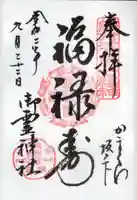 奉拝
かまくら
坂ノ下
福禄寿
御霊神社
九月二十二日